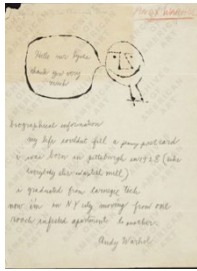 Hello mr lynes
thank you very
much
biographical information
my life couldnt fill a penny post card
i was born in pittsburgh in 1928 (like
everybody else - in a steel mill)
i graduated from carnegie tech
now im in NY city moving from one
roach infested apartment to another.
Andy Warhol